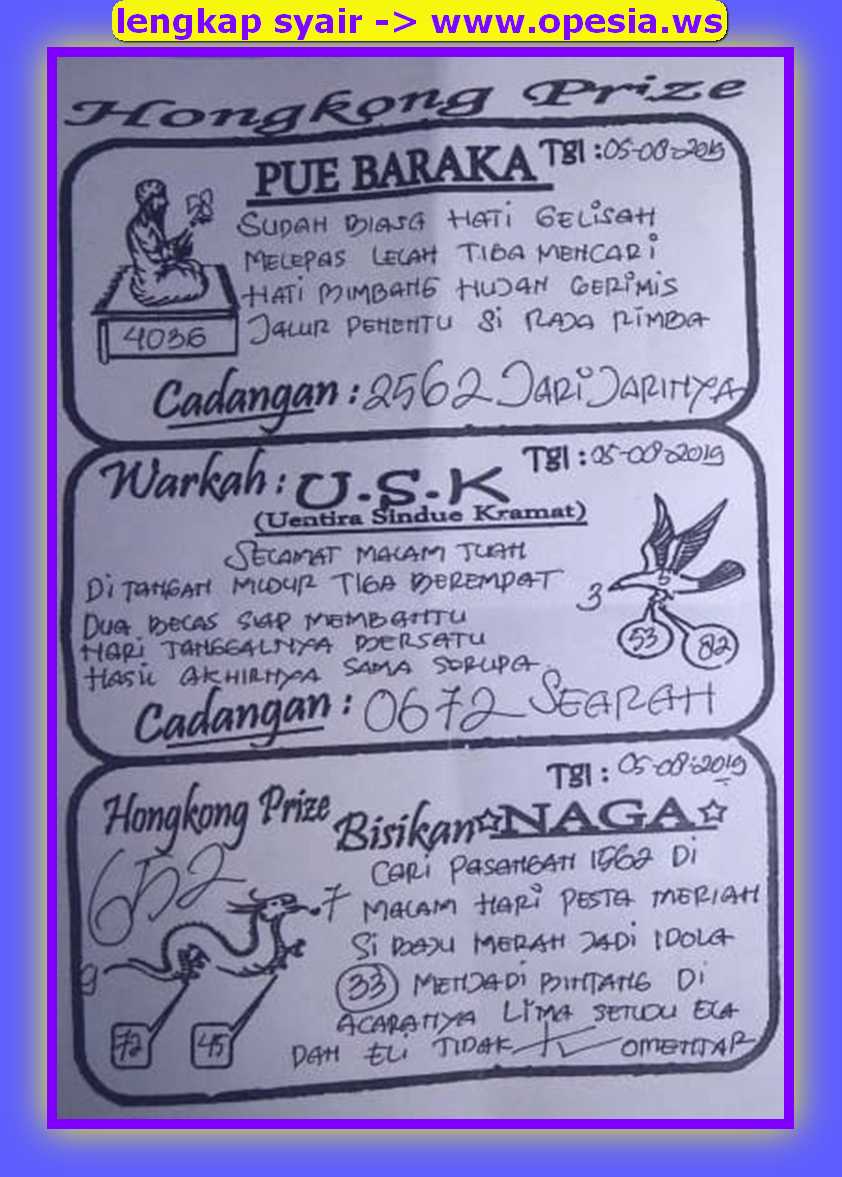 lengkap syair -> www.opesia.ws
Hongkong Prize
PUE BARAKA Tgl : 05-08-2019
SUDAH BIASA HATI GELISAH
MELEPAS LELAH TIBA MENCARI
HATI BIMBANG HUJAN GERIMIS
4036
JALUR PENENTU Si RAJA RIMBA
Cadangan : 2562 JARI JARINYA
Warkah : U.S.K Tgl : 05-08-2019
(Uentira Sindue Kramat)
SELAMAT MALAM TUAH
Di TANGAN MUDUR TIGA BEREMPAT
3
DUA BELAS SIAP MEMBANTU
53 82
HARI TANGGALNYA BERSATU
HASIL AKHIRNYA SAMA SERUPA
Cadangan : 0672 SEARAH
Tgl : 05-08-2019
Hongkong Prize Bisikan NAGA
652
CARI PASANGAN 1562 Di
7
MALAM HARI PESTA MERIAH
Si BAJU MERAH JADI IDOLA
9
33 MENJADI BINTANG Di
ACARANYA LIMA SETUJU ELA
72 45
DAN ELI TIDAK KOMENTAR